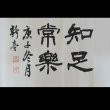 知足
常樂
庚子冬月